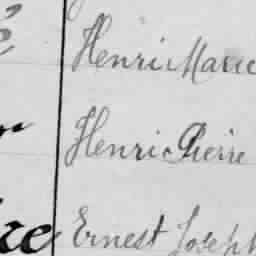 Henri Marie
Henri Pierre
Ernest Joseph